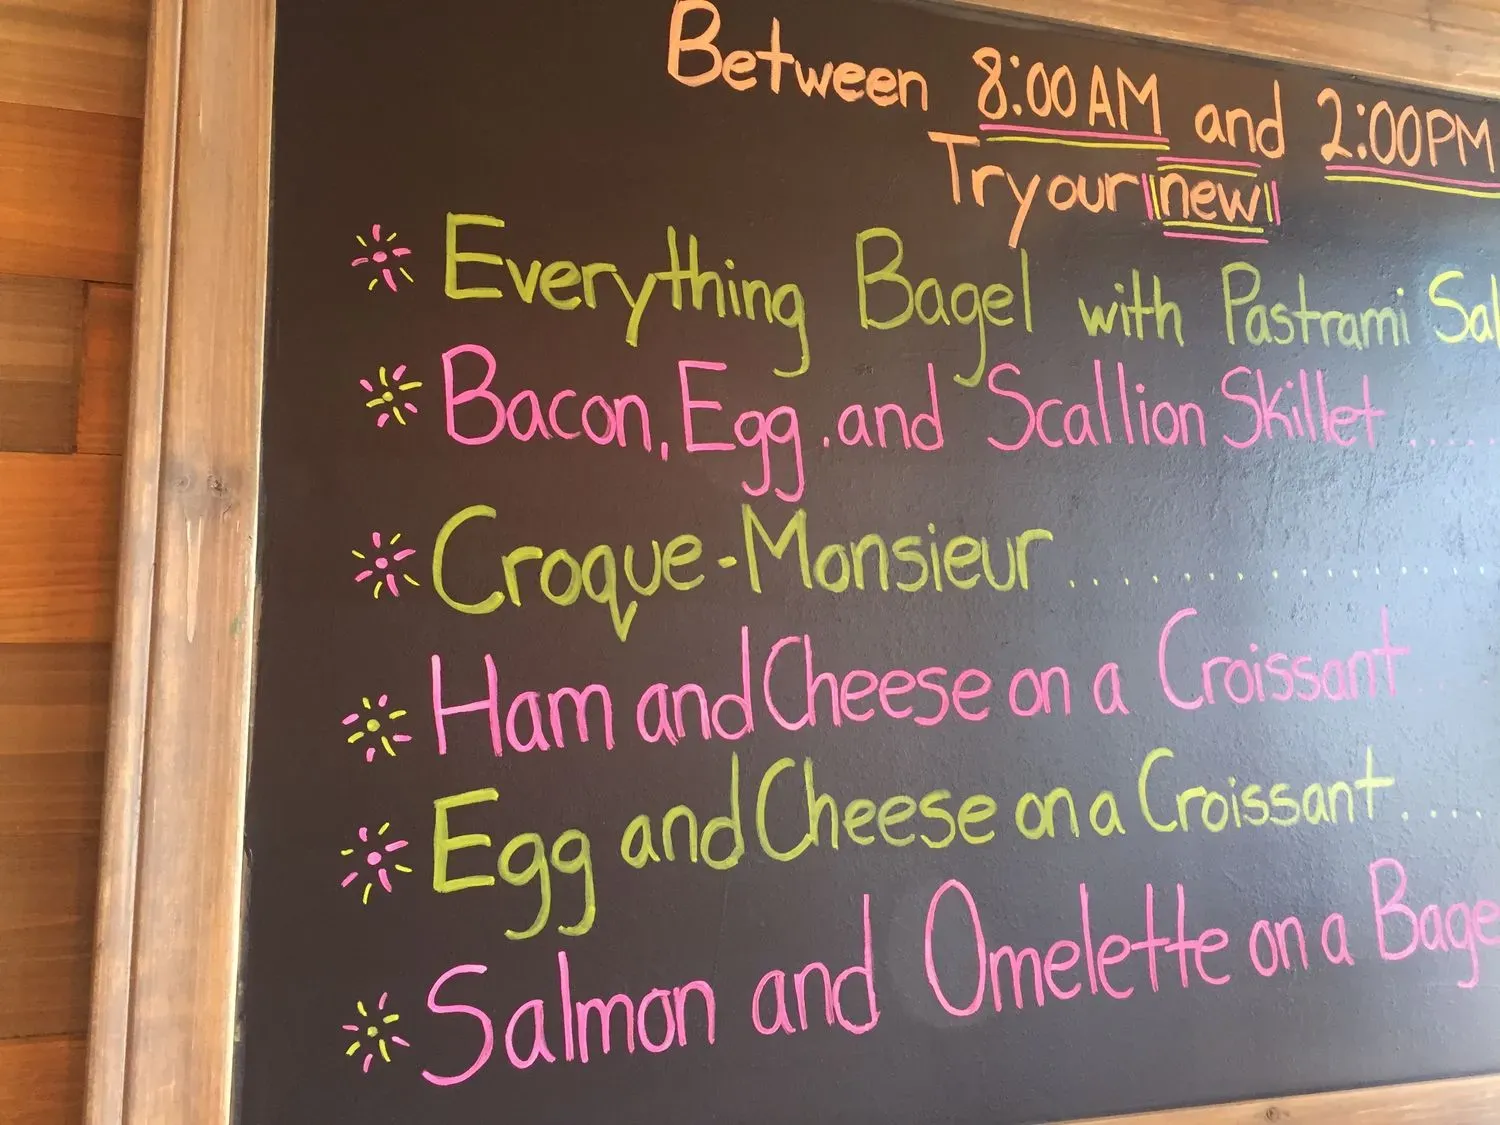 Between 8:00AM and 2:00PM
Try our new
Everything Bagel with Pastrami Sal
Bacon, Egg, and Scallion Skillet ....
Croque-Monsieur ..............
Ham and Cheese on a Croissant
Egg and Cheese on a Croissant ....
Salmon and Omelette on a Bage